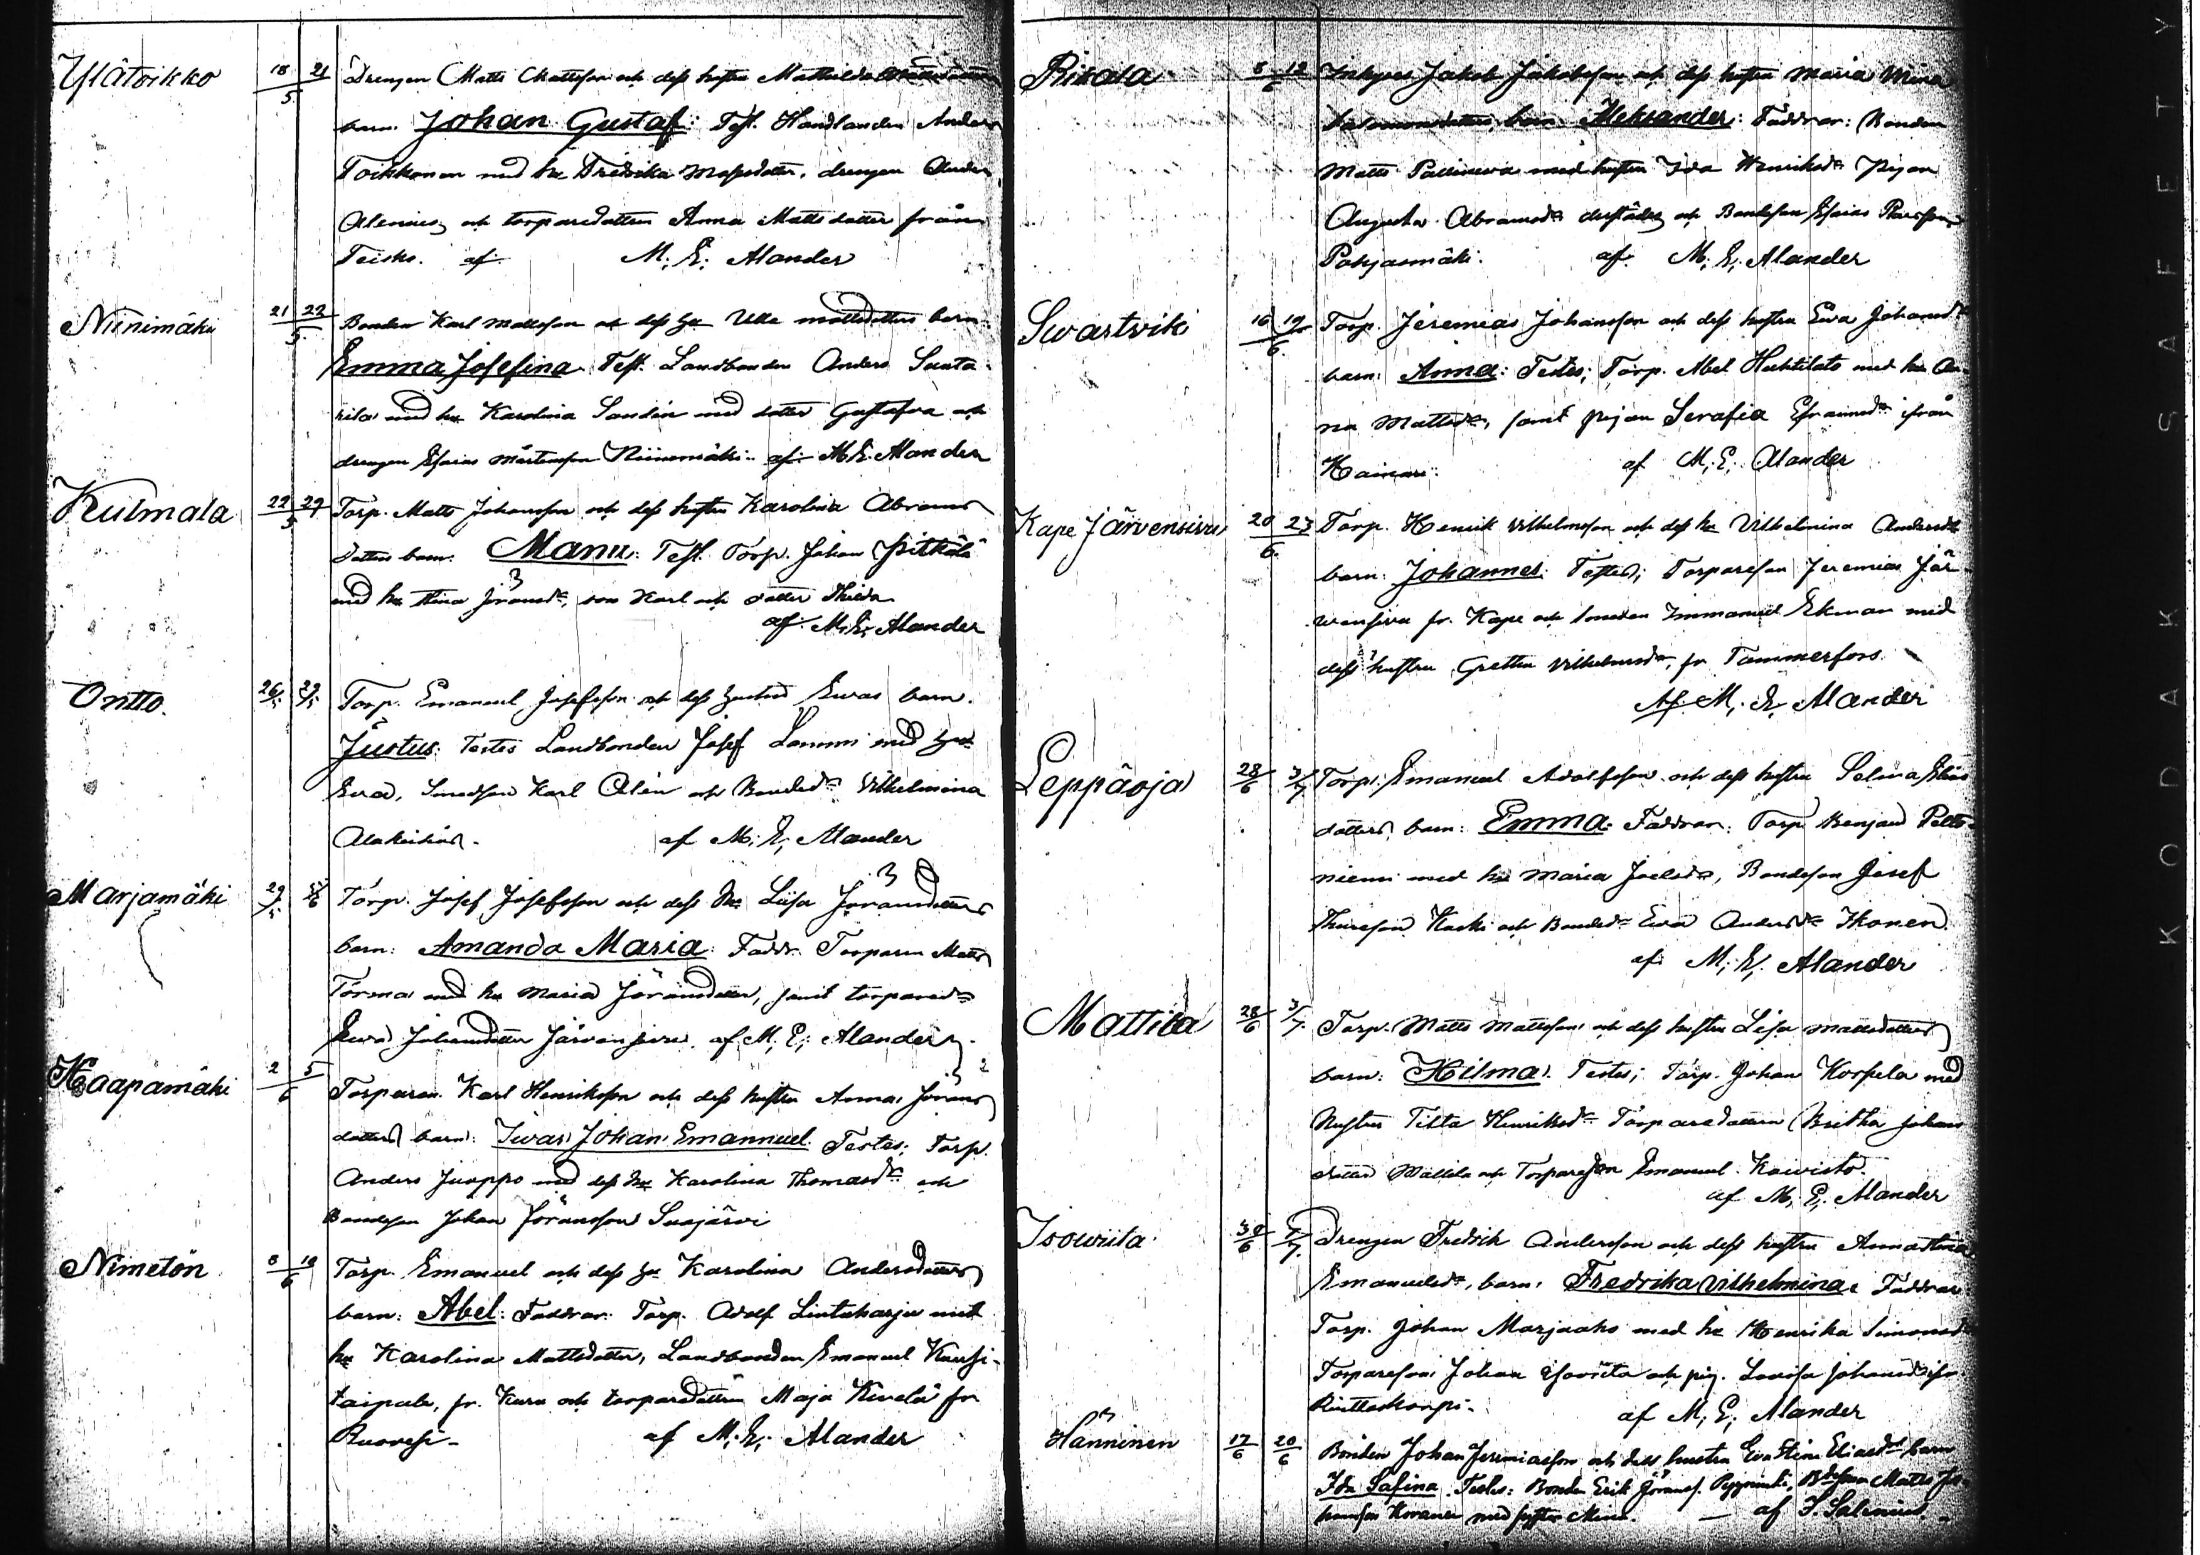 Ylätoikko 18 21 Drengen Matts Mattsson och dess hustru Mathilda
5 barn. Johan Gustaf: Test. Handlanden Anders
Toikkonen med hu Fredrika dotter, drengen
Alenius och torparedottern Anna Mattsdotter från
Teisko. af M. E. Alander
Niinimäki 21 22 Bonden Karl Mattsson och dess hu Ulla Mattsdotters barn
5 Emma Josefina. Test. Landbonden Anders Santa-
med hu Karolina Sandén med dotter Gustafva och
drengen Esaias Mårtensson Niinimäki. af M. E. Alander
Kulmala 22 27 Torp. Matts Johansson och dess hustru Karolina Abrams
5 dotters barn. Manu: Test. Torp. Johan Pitkälä
med hu Stina Göransdr, son Karl och dotter Hilda
af M. E. Alander
Ontto. 26/5 29/5 Torp. Emanuel Josefsson och dess hustru Evas barn.
Justus: Testes Landbonden Josef Lammi med hu
Eva, Smedson Karl Alén och Bondedr Vilhelmina
af M. E. Alander
Marjamäki 29/5 Torp. Josef Josefsson och dess hu Liisa Göransdotters
barn: Amanda Maria: Faddr. Torparen Matts
Törmä med hu Maria Göransdotter, samt torparedr
Eva Johansdotter Järvensivu. af M. E. Alander
Haapamäki 2 5 Torparen Karl Henriksson och dess hustru Anna Görans
6 dotters barn: Ivar Johan Emannuel. Testes; Torp.
Anders Juoppo med dess hu Karolina Thomasdr och
Bondeson Johan Göransson Suojärvi
Nimetön 8 10 Torp. Emanuel och dess hu Karolina Andersdotters
6 barn: Abel: Faddrar: Torp. Adolf Lintuharju med
hu Karolina Mattsdotter, Landbonden Emanuel Kuusi-
taipale, fr. Kuru och torparedottern Maja Kivelä fr
Ruovesi. af M. E. Alander
8 12 Inhyses Jakob Jakobsson och dess hustru Maria Mina
6 Salomonsdotters barn Aleksander: Faddrar: Bonden
Matts med hustru Ida Henriksdr Pijan
Augusta Abramsdr och Bondeson Esaias
Pohjasmäki. af M. E. Alander
Swartvik 16 19 Torp. Jeremias Johansson och dess hustru Eva Johansdr
6 barn: Anna: Testes; Torp. Abel Huhtilato med hu An-
na Mattsdr, samt pijan Serafia Efraimsdr ifrån
Hainari. af M. E. Alander
Kape Järvensivu 20 23 Torp. Henrik Vilhelmsson och dess hu Vilhelmina Andersdr
6 barn: Johannes: Testes; Torpareson Jeremias Jär-
vensivu fr. Kape och smeden Immanuel Ekman med
dess hustru Gretha Vilhelmsdr, fr Tammerfors.
Af M. E. Alander
Leppäoja 28/6 3/7 Torp. Emanuel Adolfsson och dess hustru Selma Elias
dotters barn: Emma: Faddrar: Torp Benjam Pelto-
niemi med hu Maria Joelsdr, Bondeson Josef
Thuresson Kaski och Bondedr Eva Andersdr Ikonen.
af M. E. Alander
Mattila 28/6 3/7. Torp. Matts Mattsson och dess hustru Lisa Mattsdotters
barn: Hilma. Testes; Torp. Johan Korpela med
hustru Tilta Henriksdr Torparedottern Britha Johans
dotter Mattila och Torpareson Emanuel Koivisto.
af M. E. Alander
Isowiita 30/6 Drengen Fredrik Andersson och dess hustru Anna Stina
Emanuelsdr, barn: Fredrika Vilhelmina: Faddrar
Torp. Johan Marjaaho med hu Henrika Simonsdr
Torpareson Johan Isoviita och pig. Lovisa Johansdr ifr.
af M. E. Alander
Hänninen 17/6 20/6 Bonden Johan Jeremiasson och dess hustru Eva Stina Eliasdr barn
Ida Safina. Testes: Bonden Erik Göransf. Matts Jo-
hansson med hustru Mina. — af F. Salenius.
KODAK SAFETY